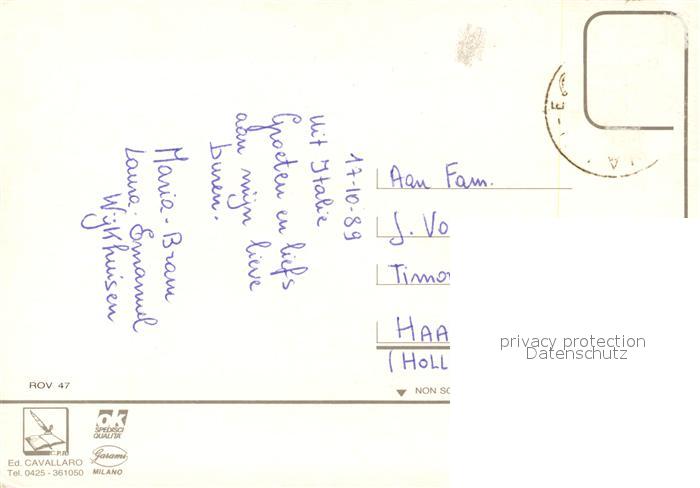 17-10-89
Uit Italie
Groeten en liefs
aan mijn lieve
buren.
Maria - Bram
Laura - Emanuel
Wijkhuisen
Aan Fam.
J. Vo
Timo
HAA
(HOLL
privacy protection
Datenschutz
ROV 47
NON SC
C.P.R.
Ed. CAVALLARO
Tel. 0425 - 361050
ok
SPEDISCI
QUALITA'
Garami
MILANO